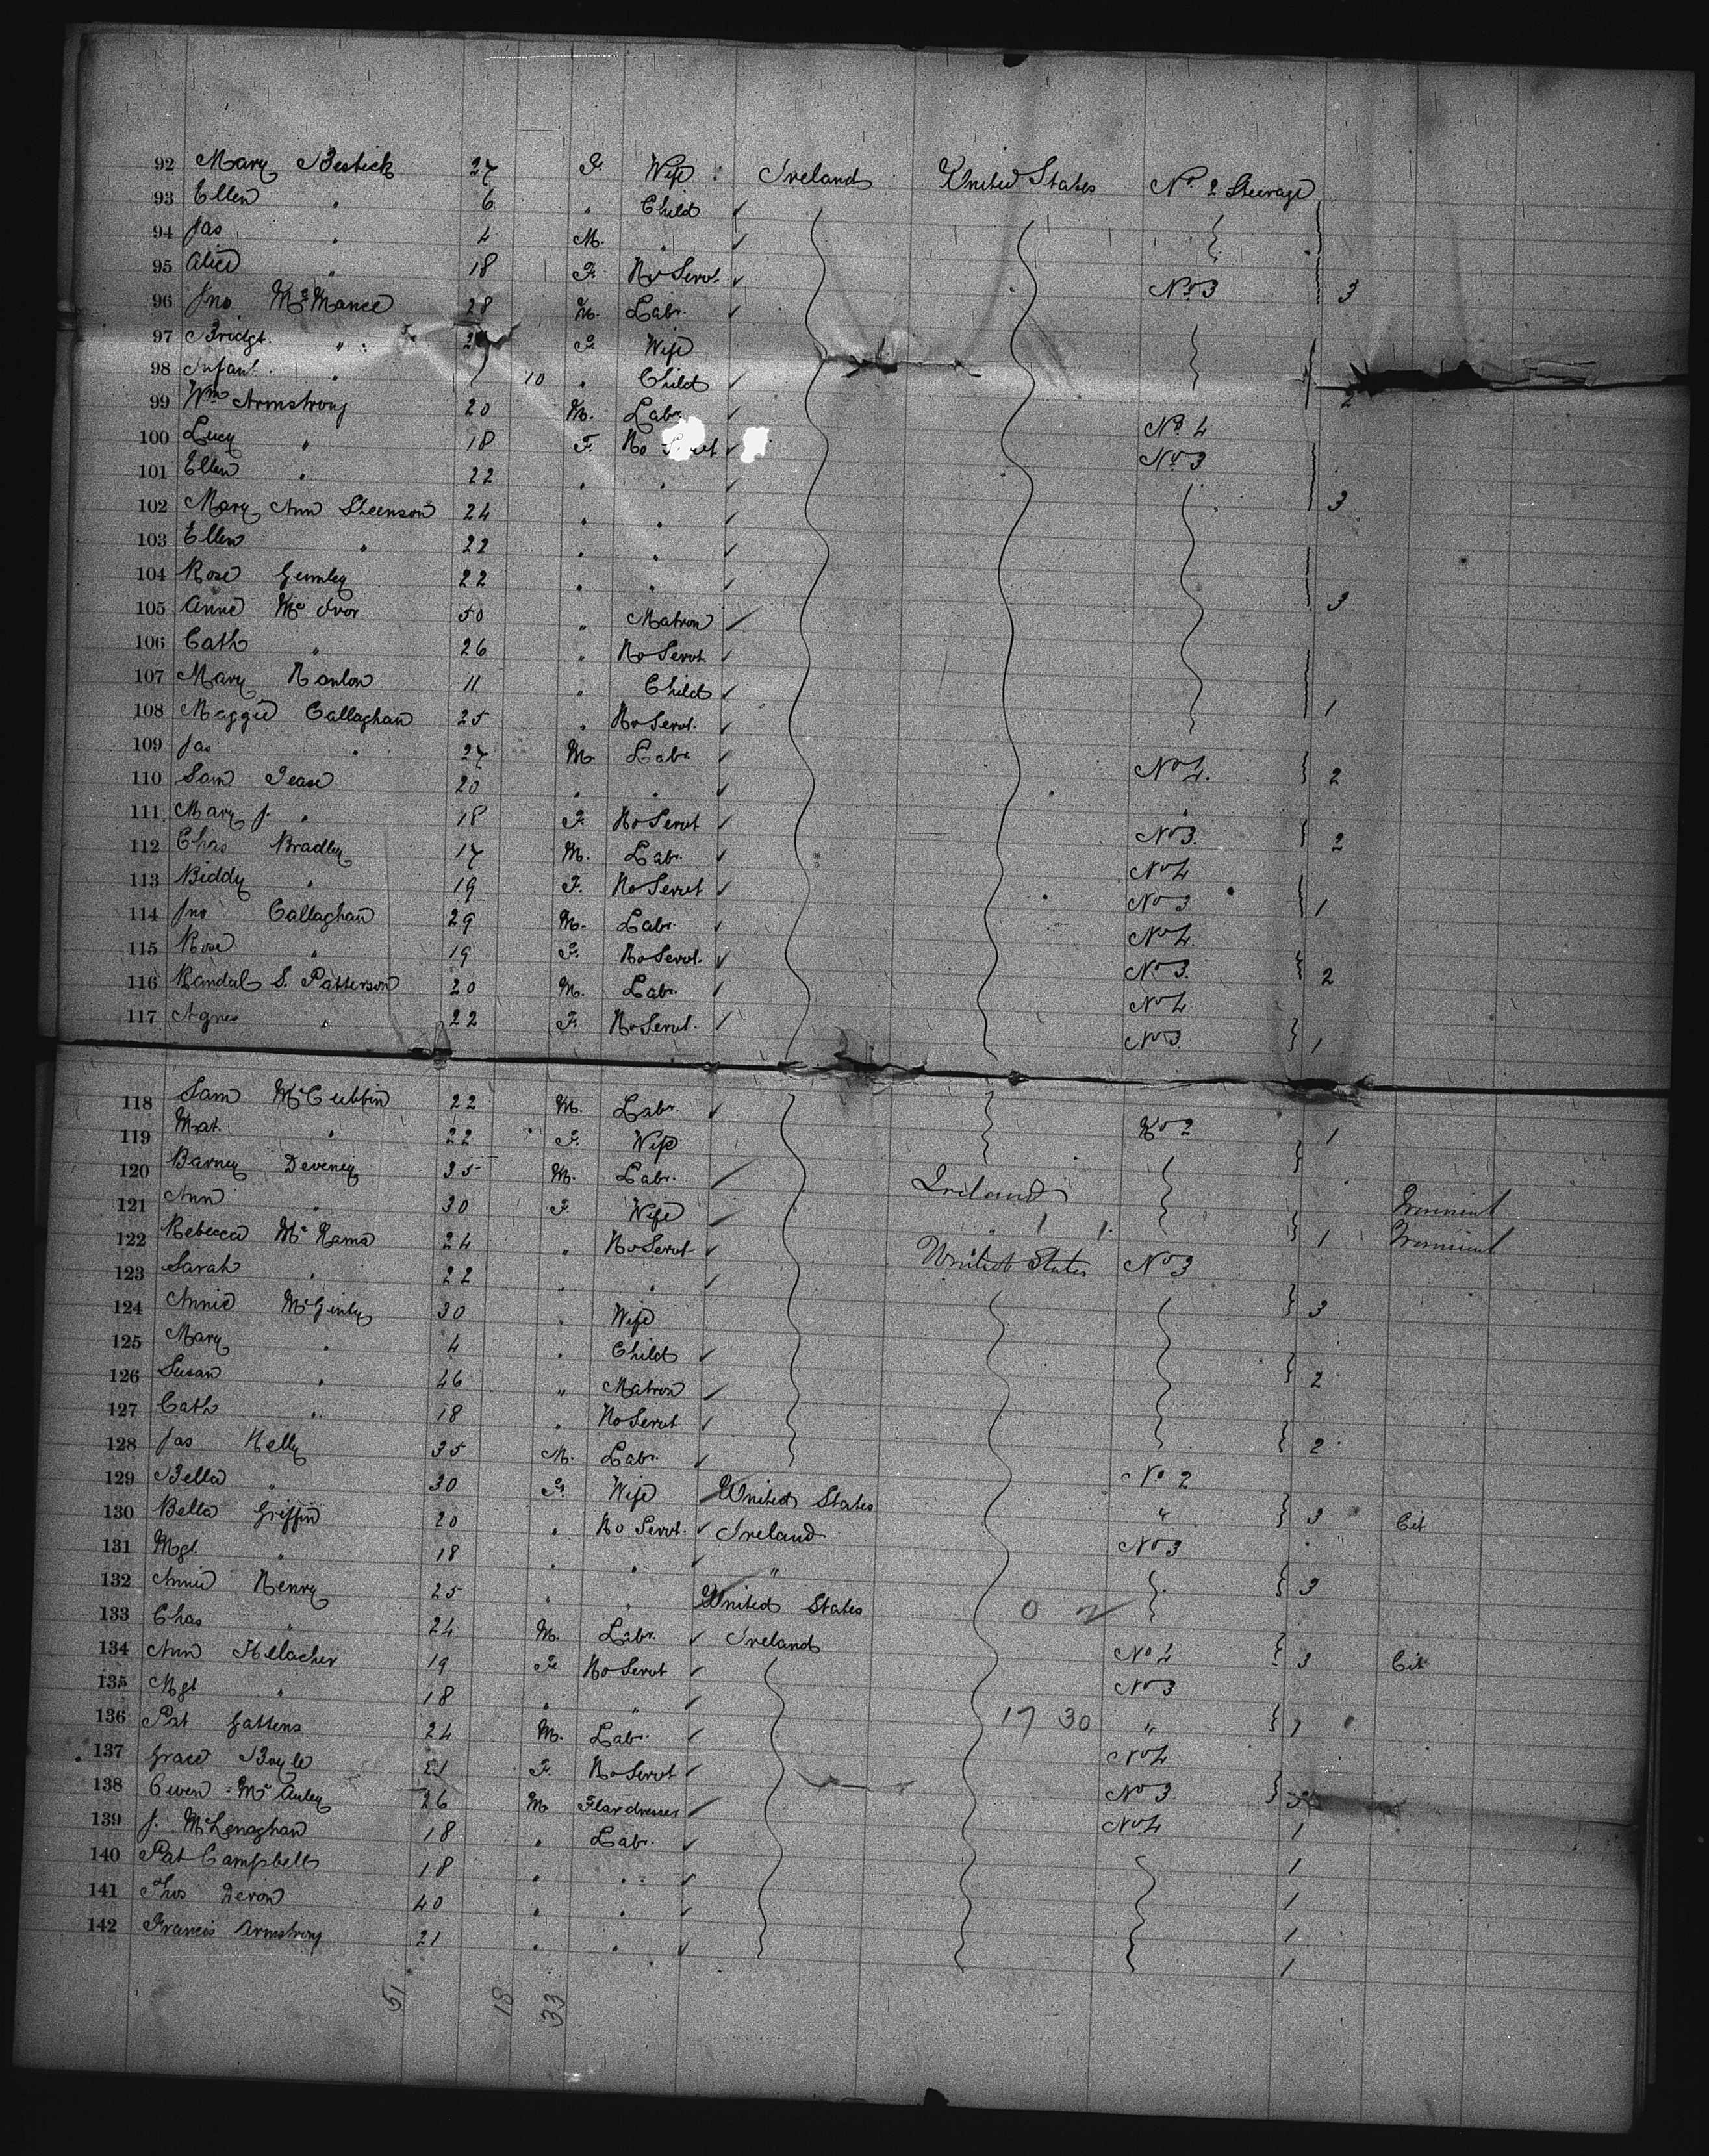 92 Mary Bestick 27 F. Wife Ireland United States No. 2 Steerage
93 Ellen " 6 " Child
94 Jas " 4 M. "
95 Alice " 18 F. No Servt. No 3 3
96 Jno McMance 28 M. Labr.
97 Bridgt. " F. Wife
98 Infant " 10 " Child 2
99 Wm Armstrong 20 M. Labr No 4
100 Lucy " 18 F. No No 3
101 Ellen " 22 " " 3
102 Mary Ann Steenson 24 " "
103 Ellen " 22 " "
104 Rose Gumley 22 " " 3
105 Anne McIvor 50 " Matron
106 Cath " 26 " No Servt
107 Mary Hanlon 11 " Child 1
108 Maggie Callaghan 25 " No Servt.
109 Jas " 27 M. Labr No 4. 2
110 Sam Pease 20 " "
111 Mary J. " 18 F. No Servt No 3. 2
112 Chas Bradley 17 M. Labr. No 4
113 Biddy " 19 F. No Servt No 3 1
114 Jno Callaghan 29 M. Labr. No 4.
115 Rose " 19 F. No Servt. No 3. 2
116 Randal S. Patterson 20 M. Labr. No 4
117 Agnes " 22 F. No Servt. No 3. 1
118 Sam McCubbin 22 M. Labr. No 2 1
119 Mat. " 22 F. Wife
120 Barney Deveney 35 M. Labr. Ireland
121 Ann " 30 F. Wife " 1
122 Rebecca McNama 24 " No Servt United States No 3
123 Sarah " 22 " " 3
124 Annie McGinty 30 " Wife
125 Mary " 4 " Child 2
126 Susan " 46 " Matron
127 Cath " 18 " No Servt 2
128 Jas Kelly 35 M. Labr. No 2
129 Bella " 30 F. Wife United States " 3 Cit
130 Bella Griffin 20 " No Servt. Ireland No 3
131 Mgt. " 18 " " " 3
132 Annie Henry 25 " " United States
133 Chas " 24 M. Labr. Ireland No 4 3 Cit
134 Ann 19 F. No Servt No 3
135 Mgt " 18 " " 17 30 " 1
136 Pat Gattens 24 M. Labr. No 4
137 Grace Boyle 21 F. No Servt No 3
138 Owen McAuley 26 M Flaxdresser No 4 1
139 J. McLenaghan 18 " Labr. 1
140 Pat Campbell 18 " " 1
141 Thos Devon 40 " " 1
142 Francis Armstrong 21 " " 1
51 18 33